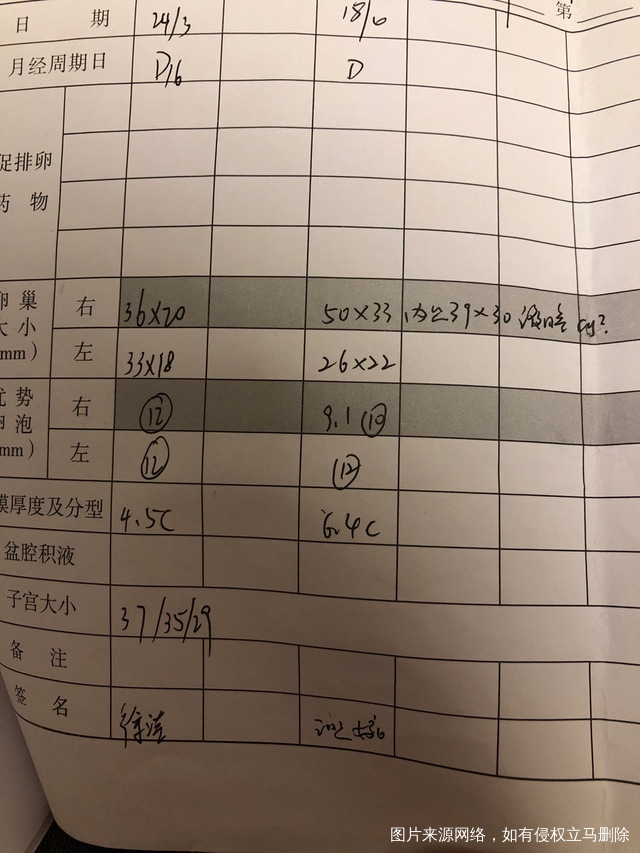 第
日 期 24/3 18/6
月经周期日 D16 D
促排卵
药 物
卵 巢 右 36×20 50×33 内见39×30
大 小
mm) 左 33×18 26×22
优 势 右 12 9.1 10
卵 泡
mm) 左 12 12
膜厚度及分型 4.5C 6.4C
盆腔积液
子宫大小 37/35/29
备 注
签 名
图片来源网络，如有侵权立马删除